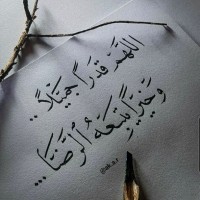 اللَّهُمَّ قَدَرًا جَمِيلًا..
وَخَيْرًا يَتْبَعُهُ الرِّضَا...
@ak.a.r